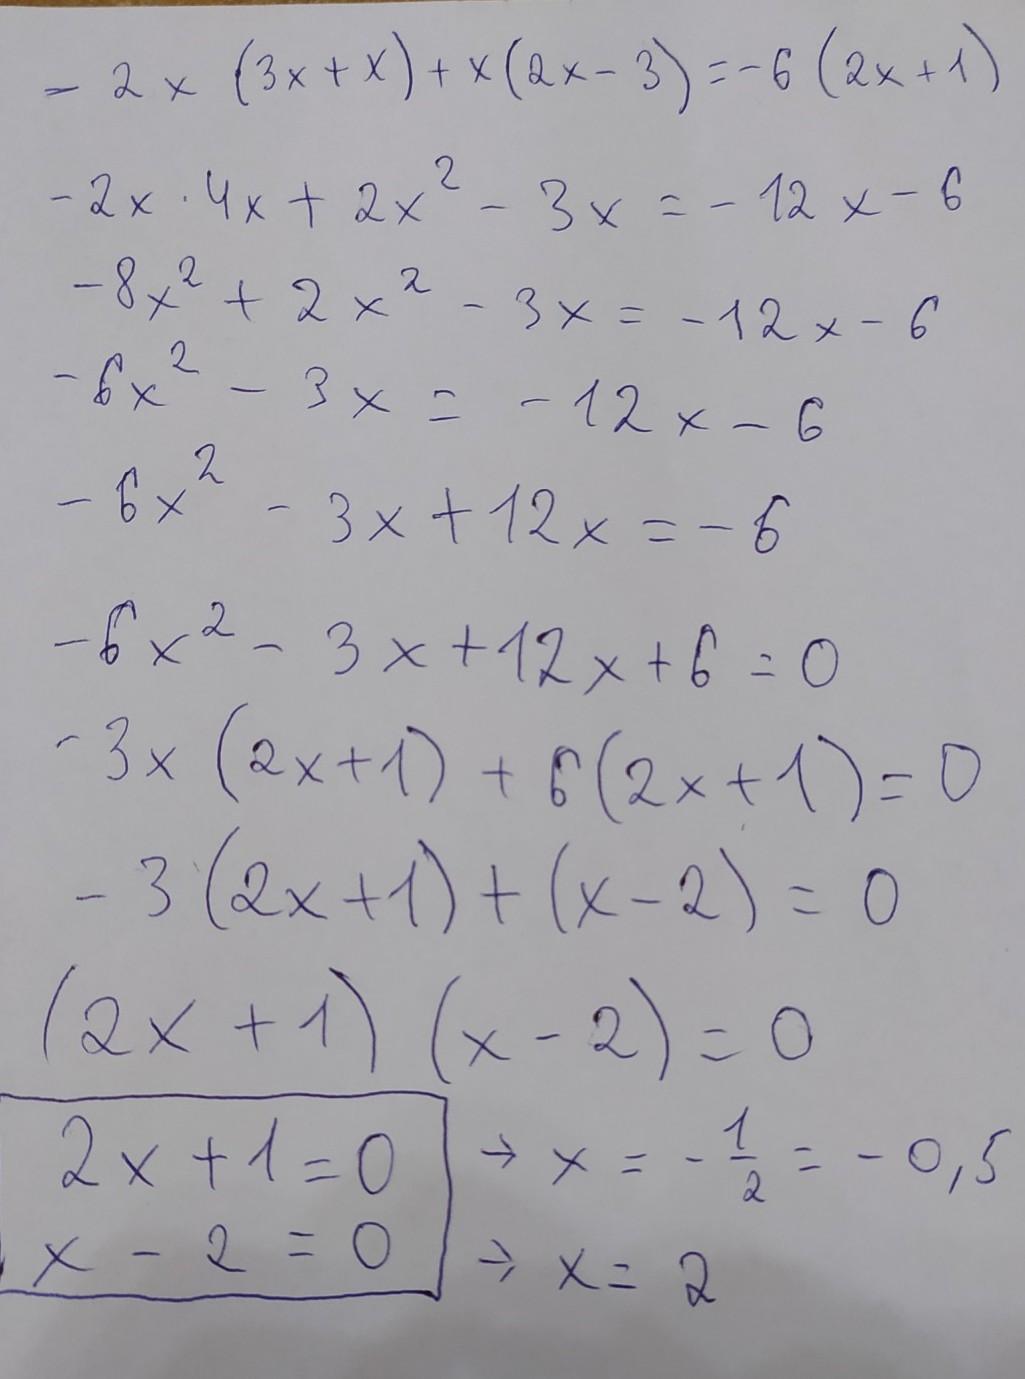 - 2x (3x+x)+x(2x-3)=-6(2x+1)
-2x·4x+2x²-3x=-12x-6
-8x²+2x²-3x=-12x-6
-6x²-3x=-12x-6
-6x²-3x+12x=-6
-6x²-3x+12x+6=0
-3x(2x+1)+6(2x+1)=0
-3(2x+1)+(x-2)=0
(2x+1)(x-2)=0
2x+1=0 → x=-1/2=-0,5
x-2=0 → x=2